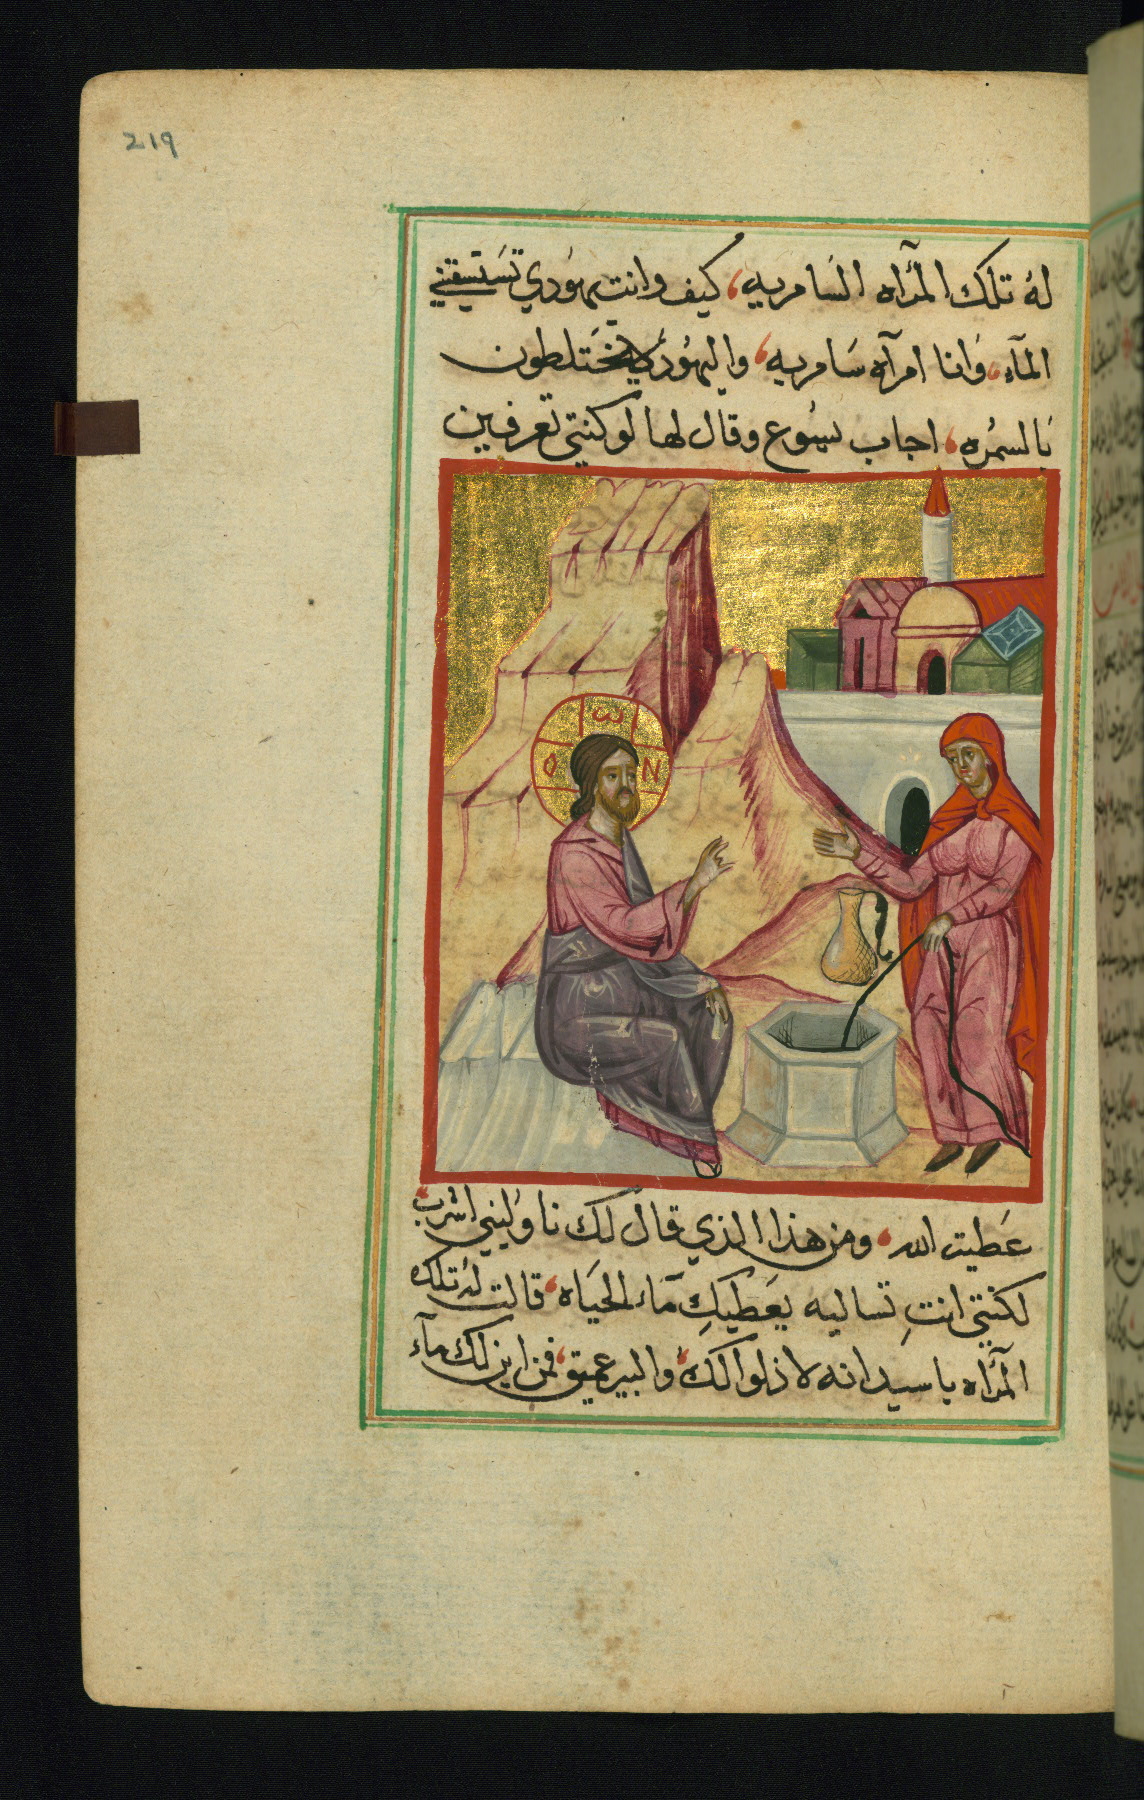 219
له تلك المرآه السامريه، كيف وانت يهودي تستسقيني
المآء، وانا امرآه سامريه، واليهود لا يختلطون
بالسمره، اجاب يسوع وقال لها لو كنتي تعرفين
Ο ω Ν
عطيت الله، ومن هذا الذي قال لك ناوليني اشرب،
لكنتي انتِ تساليه يعطيكِ مآء الحياه، قالت له تلك
المرآه يا سيد انه لا ذلو لك، والبير عميق، فمن اين لك مآء